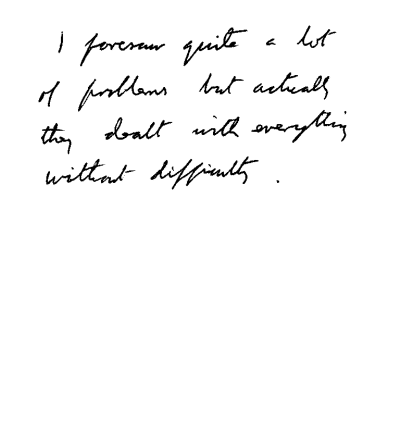 I foresaw quite a lot
of problems but actually
they dealt with everything
without difficulty .